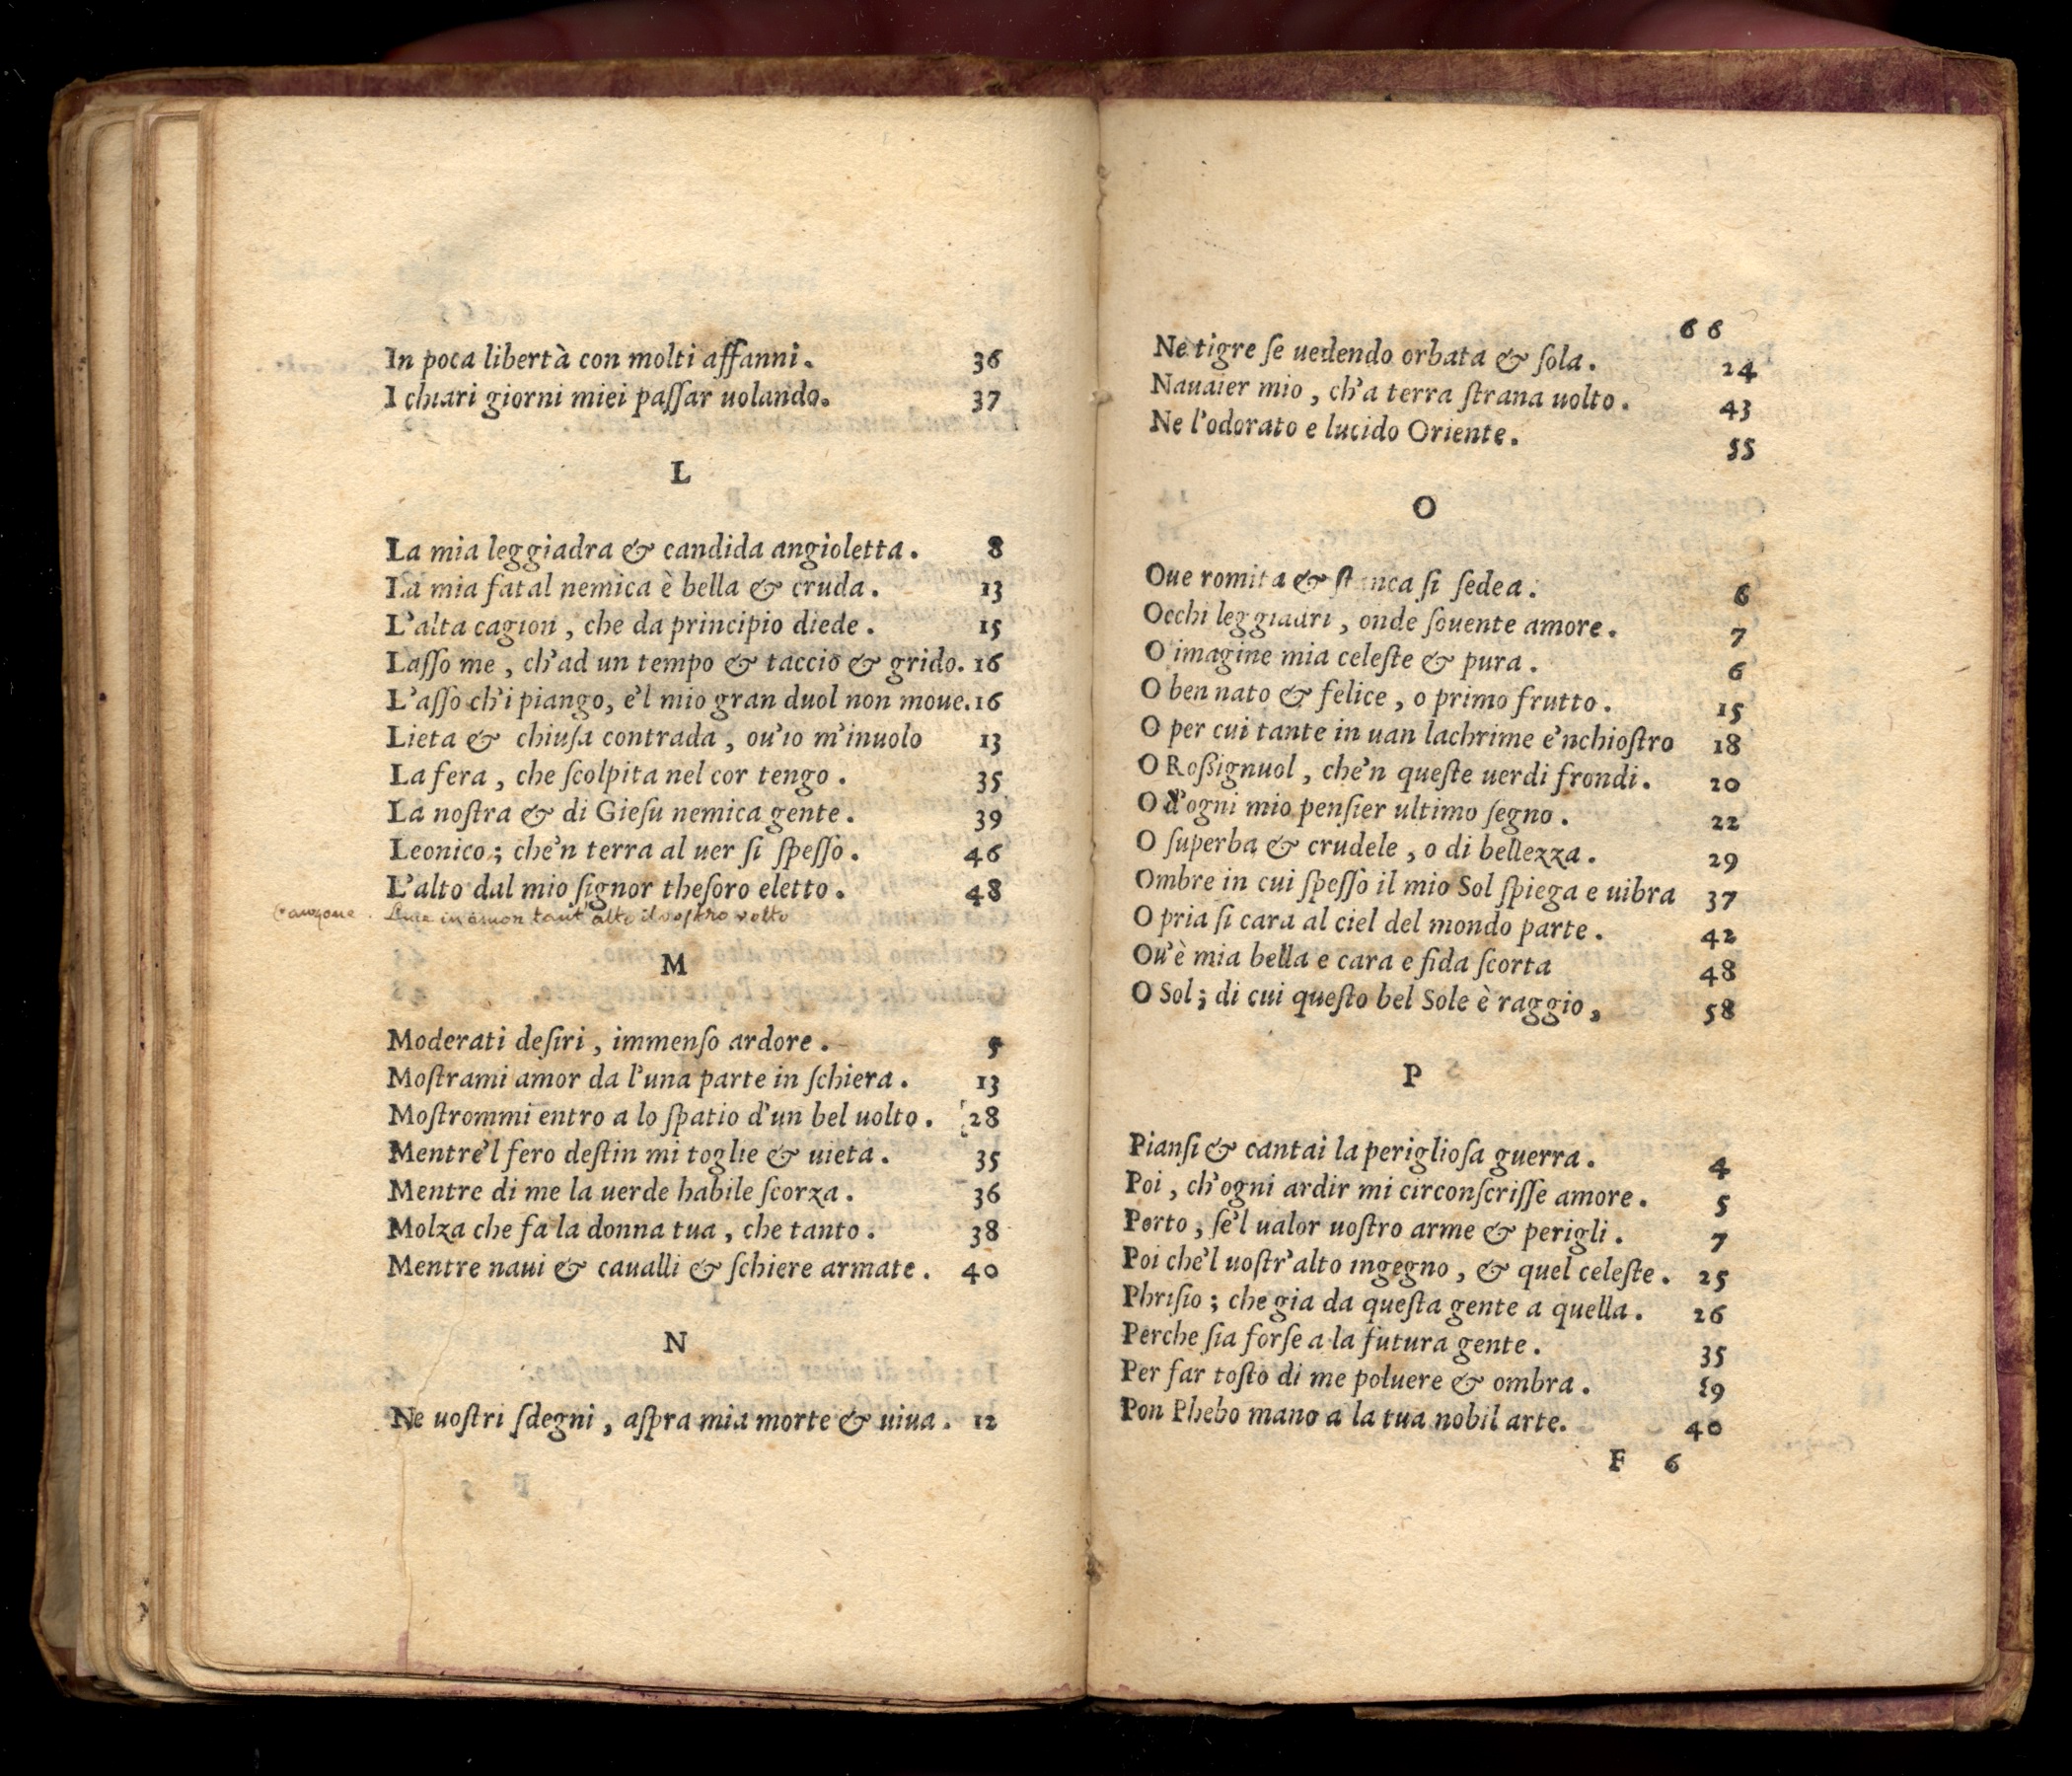 In poca libertà con molti affanni. 36
I chiari giorni miei paſſar uolando. 37
L
La mia leggiadra & candida angioletta. 8
La mia fatal nemica è bella & cruda. 13
L'alta cagion, che da principio diede. 15
Laſſo me, ch'ad un tempo & taccio & grido. 16
L'aſſo ch'i piango, e'l mio gran duol non moue. 16
Lieta & chiuſa contrada, ou'io m'inuolo 13
La fera, che ſcolpita nel cor tengo. 35
La noſtra & di Gieſu nemica gente. 39
Leonico; che'n terra al uer ſi ſpeſſo. 46
L'alto dal mio ſignor theſoro eletto. 48
Canzone. in amor tant' alto il vostro volto
M
Moderati deſiri, immenſo ardore. 5
Moſtrami amor da l'una parte in ſchiera. 13
Moſtrommi entro a lo ſpatio d'un bel uolto. 28
Mentre'l fero deſtin mi toglie & uieta. 35
Mentre di me la uerde habile ſcorza. 36
Molza che fa la donna tua, che tanto. 38
Mentre naui & caualli & ſchiere armate. 40
N
Ne uoſtri ſdegni, aſpra mia morte & uiua. 12
66
Ne tigre ſe uedendo orbata & ſola. 24
Nauaier mio, ch'a terra ſtrana uolto. 43
Ne l'odorato e lucido Oriente. 55
O
Oue romita & ſtanca ſi ſedea. 6
Occhi leggiadri, onde ſouente amore. 7
O imagine mia celeſte & pura. 6
O ben nato & felice, o primo frutto. 15
O per cui tante in uan lachrime e'nchioſtro 18
O Roßignuol, che'n queſte uerdi frondi. 20
O d'ogni mio penſier ultimo ſegno. 22
O ſuperba & crudele, o di bellezza. 29
Ombre in cui ſpeſſo il mio Sol ſpiega e uibra 37
O pria ſi cara al ciel del mondo parte. 42
Ou'è mia bella e cara e fida ſcorta 48
O Sol; di cui queſto bel Sole è raggio, 58
P
Pianſi & cantai la periglioſa guerra. 4
Poi, ch'ogni ardir mi circonſcriſſe amore. 5
Porto, ſe'l ualor uoſtro arme & perigli. 7
Poi che'l uoſtr'alto ingegno, & quel celeſte. 25
Phriſio; che gia da queſta gente a quella. 26
Perche ſia forſe a la futura gente. 35
Per far toſto di me poluere & ombra. 59
Pon Phebo mano a la tua nobil arte. 40
F 6